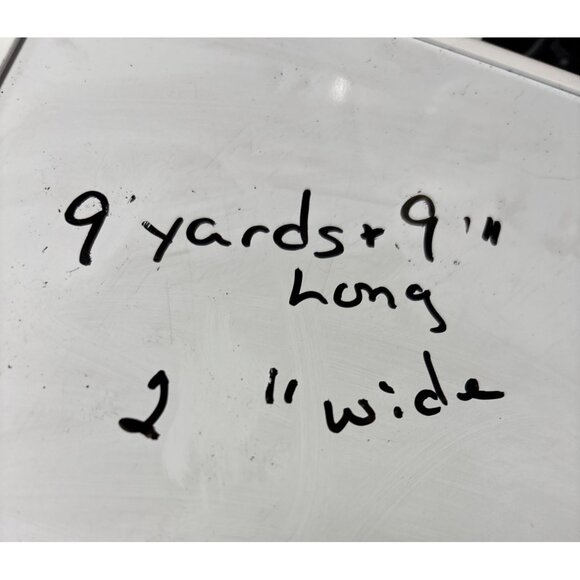 9 yards + 9 "
Long
2 " wide